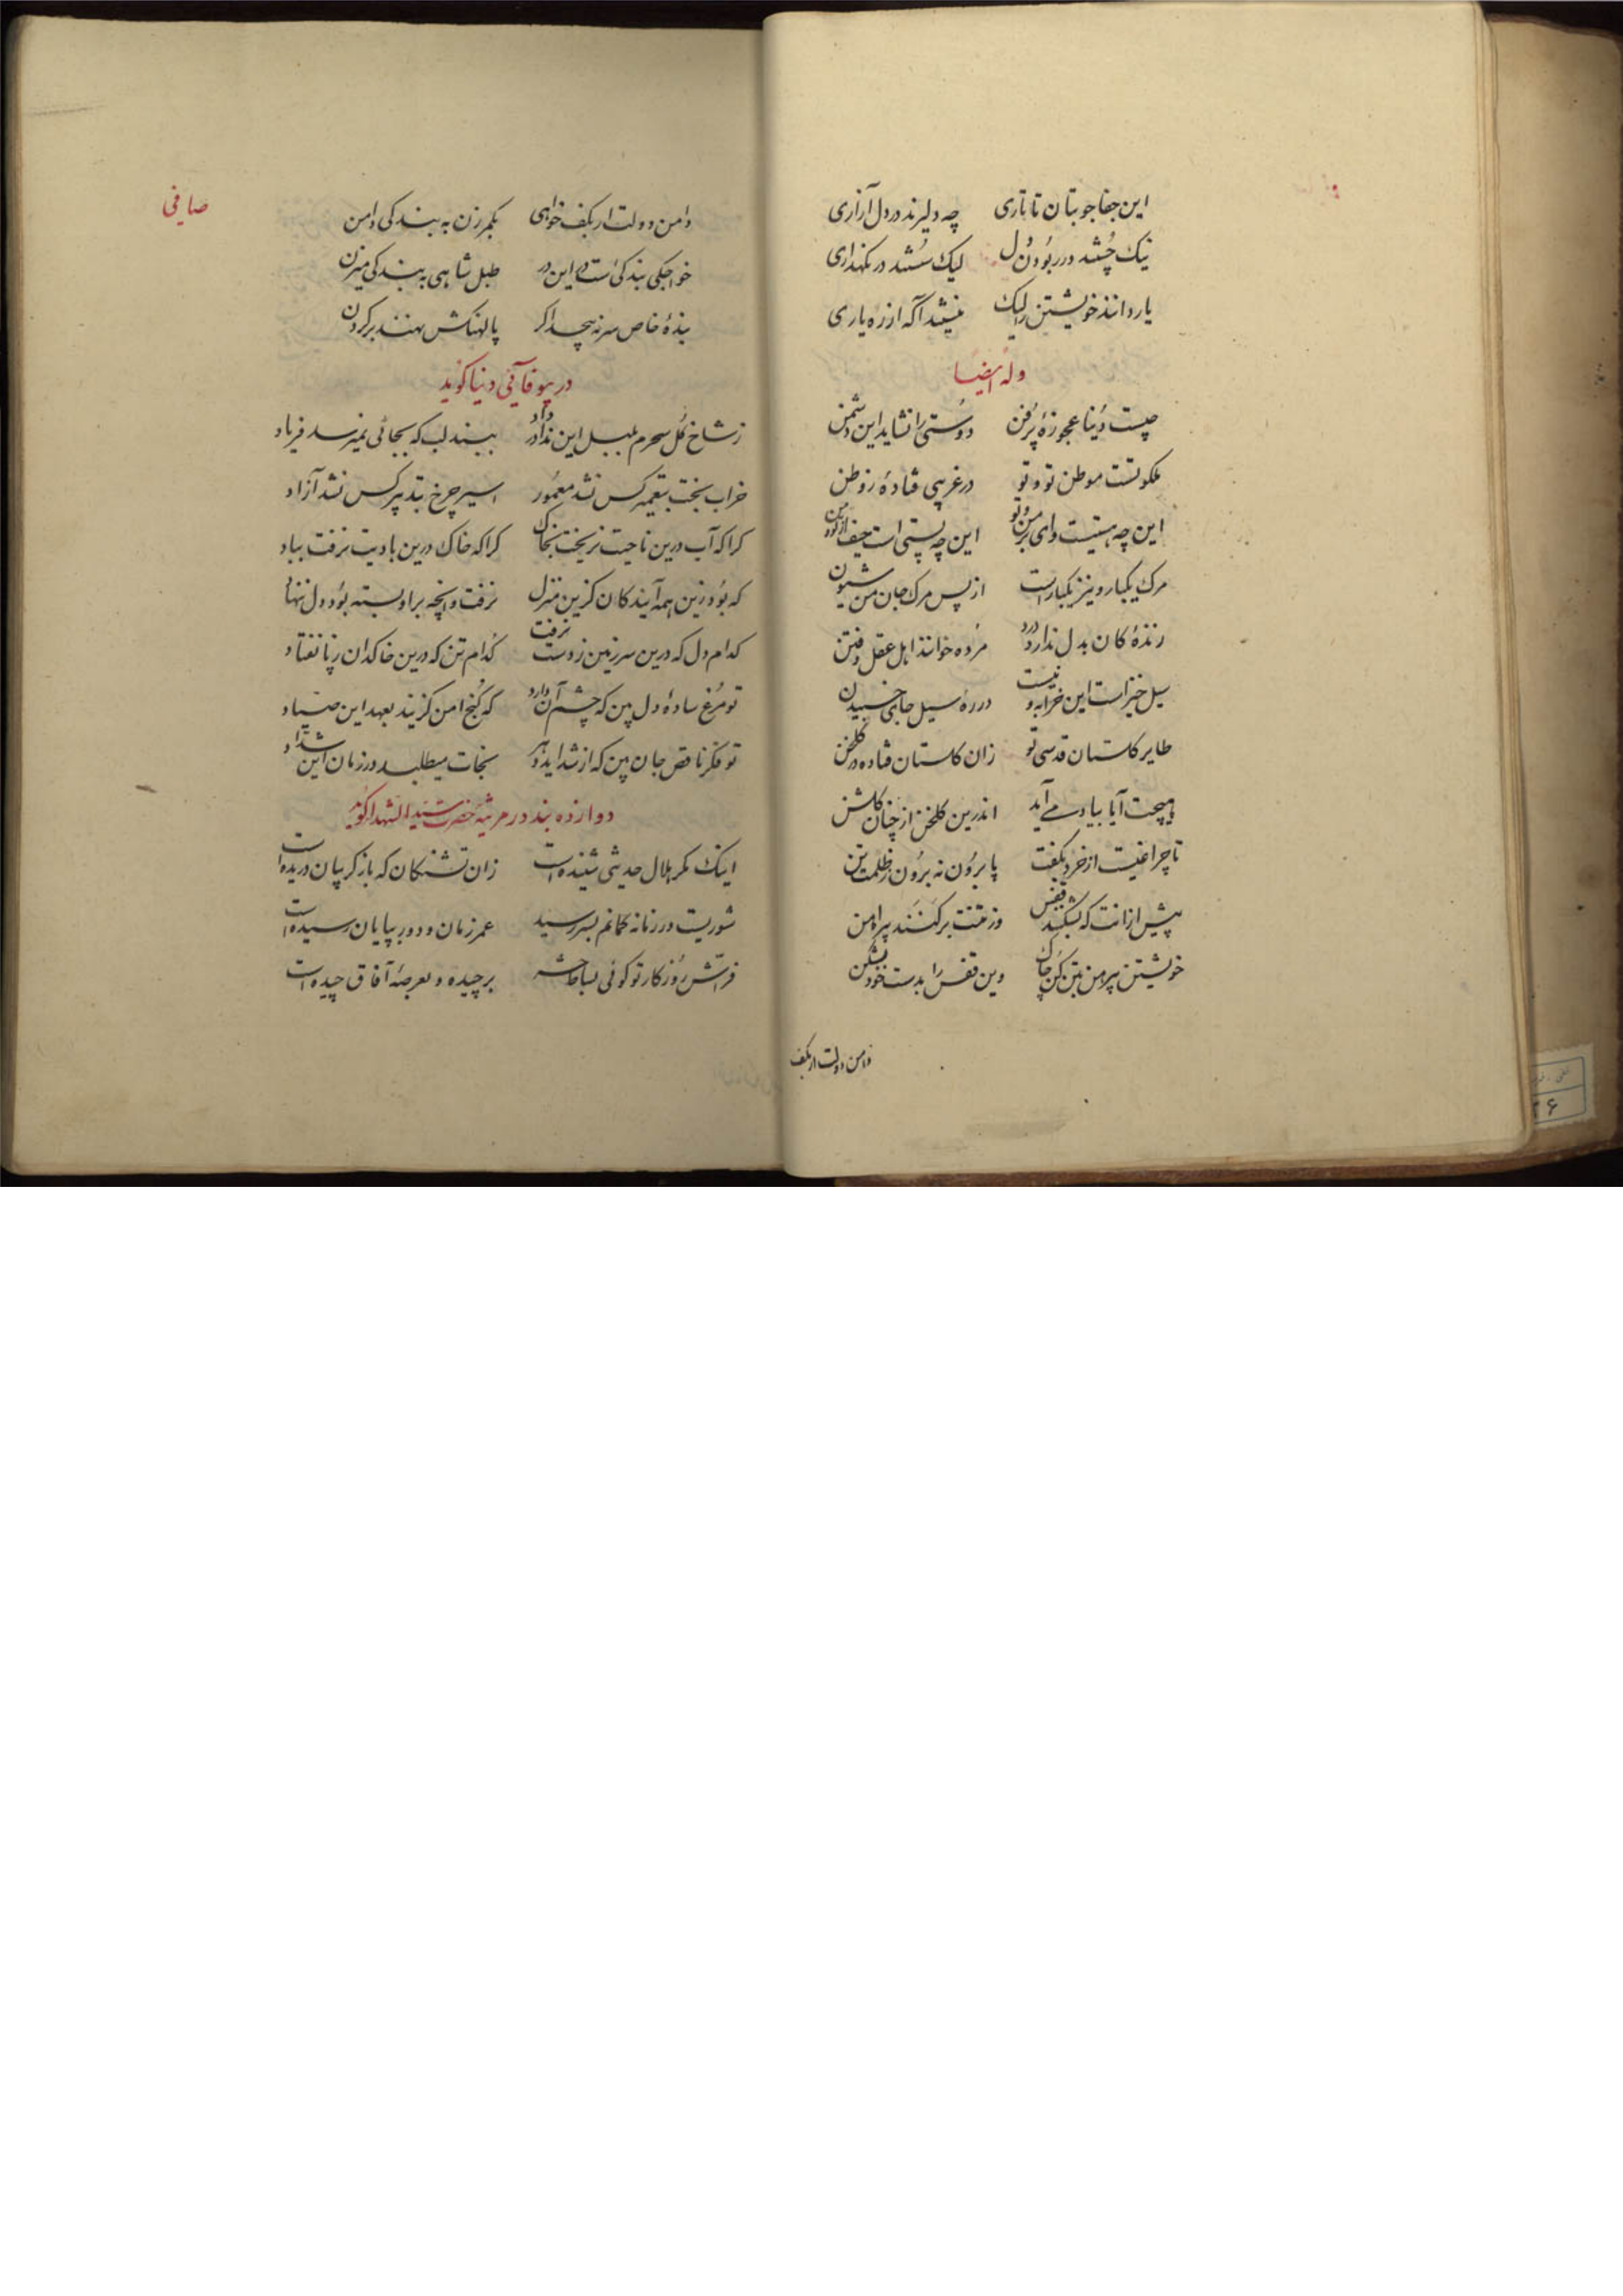 این جفا جو بتان تاتاری چه دلیرند در دل آزاری
نیک چُستند در ربُودن دل لیک سُستند در نکهداری
یار دانند خویشتن را لیک نیستند آکه از ره یاری
وله ایضا
چیست دُنیا عجوزهٔ پُرفن دوستی را نشاید این دشمن
ملکوتست موطن تو و تو در غریبی فتادهٔ ز وطن
این چه هستیست وای بر من و تو این چه پستی است حیف از تو و من
مرک یکبار و نیز یکبار است از پس مرک جان من شیون
زندهٔ کان بدل ندارد درد مُرده خوانند اهل عقل و فتن
سیل خیز است این خرابه و نیست در ره سیل جای خسبیدن
طایر کلستان قدسی تو زان کلستان فتاده در کلخن
هیچت آیا بیاد می آید اندرین کلخن از چنان کلشن
تا چراغیست از خرد بکفت پا برُون نه برُون ز ظلمت تن
پیش از انت که بشکنند قفس وز تنت برکنند پیراهن
خویشتن پیرهن بتن کن چاک وین قفس را بدست خود بشکن
دامن دولت ار بکف
صافی
دامن دولت ار بکف خواهی بکمر زن به بندکی دامن
خواجکی بندکی است در این در طبل شاهی به بندکی میزن
بندهٔ خاص سر نه پیچد اکر پالهنکش نهند بر کردن
در بیوفائی دنیا کوید
ز شاخ کُل سحرم بلبل این ندا در داد ببند لب که بجائی نمیرسد فریاد
خراب بخت بتعمیر کس نشد معمُور اسیر چرخ بتدبیر کس نشد آزاد
کرا که آب درین ناحیت نریخت بخاک کرا که خاک درین بادیت نرفت بباد
که بُود زین همه آیندکان کزین منزل نرفت و انچه بر او بسته بُود دل ننهاد
کدام دل که درین سرزمین ز دست نرفت کُدام تن که درین خاکدان ز پا نفتاد
تو مُرغ سادهٔ دل بین که چشم آن دارد که کُنج امن کزیند بعهد این صیّاد
تو فکر ناقص جان بین که از شداید دهر نجات میطلبد در زمان این شدّاد
دوازده بند در مرثیهٔ حضرت سیّد الشهدا کوید
اینک مکر هلال حدیثی شنیده است زان تشنکان که باز کریبان دریده است
شوریست در زمانه کمانم بسر رسید عمر زمان و دور بپایان رسیده است
فرّاش رُوزکار تو کوئی بساط حشر برچیده و بعرصهٔ آفاق چیده است